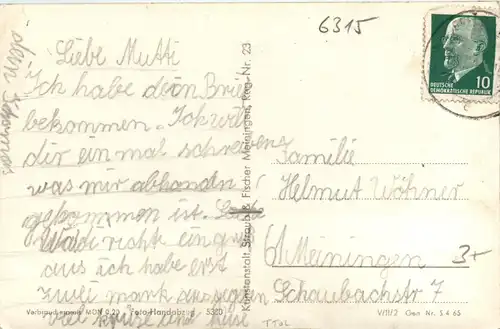 6315
Liebe Mutti
Ich habe dein Brief
bekommen. Ich
dir ein mal schreiben
was mir abhanden
gekommen ist.
richte ein
aus ich habe erst
zwei mark ausgegeben
viel
dein
Kunstanstalt Straub & Fischer Meiningen, Reg.-Nr. 23
DEUTSCHE
DEMOKRATISCHE REPUBLIK
10
Familie
Helmut Wöhner
61 Meiningen
Schaubachstr 7
3+
Verbraucherpreis MDN 0,20 Foto-Handabzug
V/11/2 Gen Nr. S 4 65